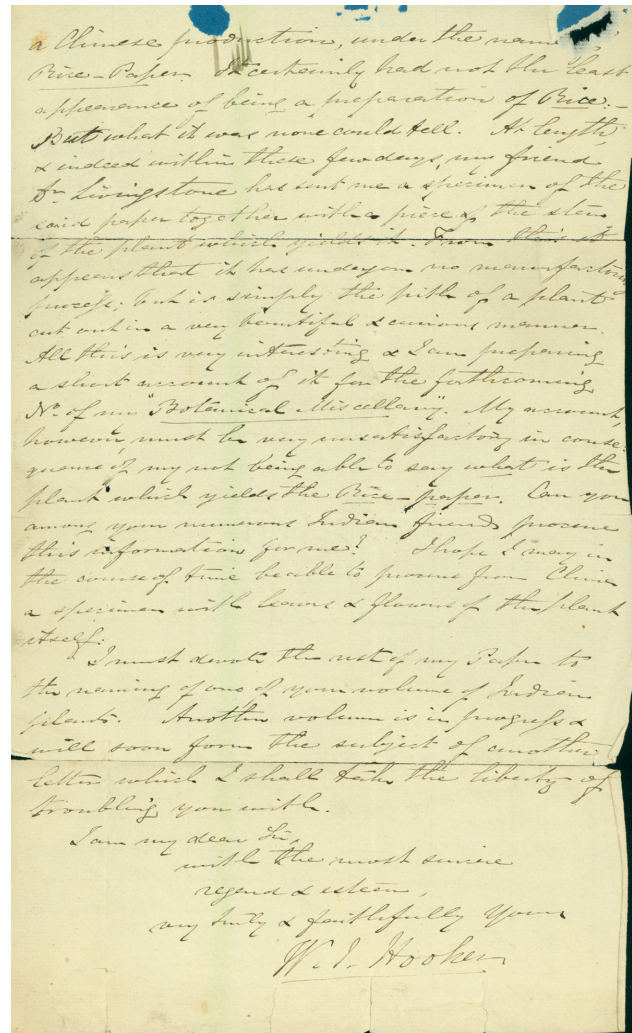 a Chinese production, under the name
Rice-Paper. It certainly had not the least
appearance of being a preparation of Rice.-
But what it was none could tell. At length,
& indeed within these few days, my friend
Dr. Livingstone has sent me a specimen of the
said paper together with a piece of the stem
of the plant which yields it. From this it
appears that it has undergone no manufacturing
process; but is simply the pith of a plant
cut out in a very beautiful & curious manner.
All this is very interesting & I am preparing
a short account of it for the forthcoming
No. of my "Botanical Miscellany". My account,
however, must be very unsatisfactory in conse-
quence of my not being able to say what is the
plant which yields the Rice-paper. Can you
among your numerous Indian friends procure
this information for me? I hope I may in
the course of time be able to procure from China
a specimen with leaves & flowers of the plant
itself.
I must devote the rest of my Paper to
the naming of one of your volume of Indian
plants. Another volume is in progress &
will soon form the subject of another
letter which I shall take the liberty of
troubling you with.
I am my dear Sir,
with the most sincere
regard & esteem,
very truly & faithfully Yours
W. J. Hooker